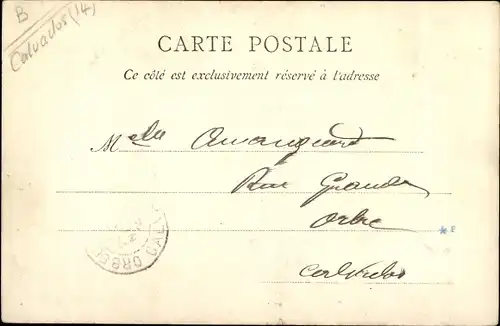 B
Calvados (14)
CARTE POSTALE
Ce côté est exclusivement réservé à l'adresse
Melle
Rue Grande
Orbec
Calvados
ORBEC CAL